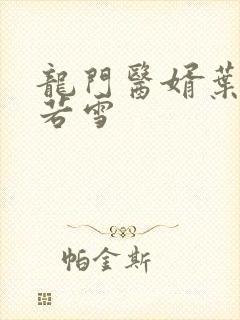 龍門醫婿葉
若雪
帕金斯